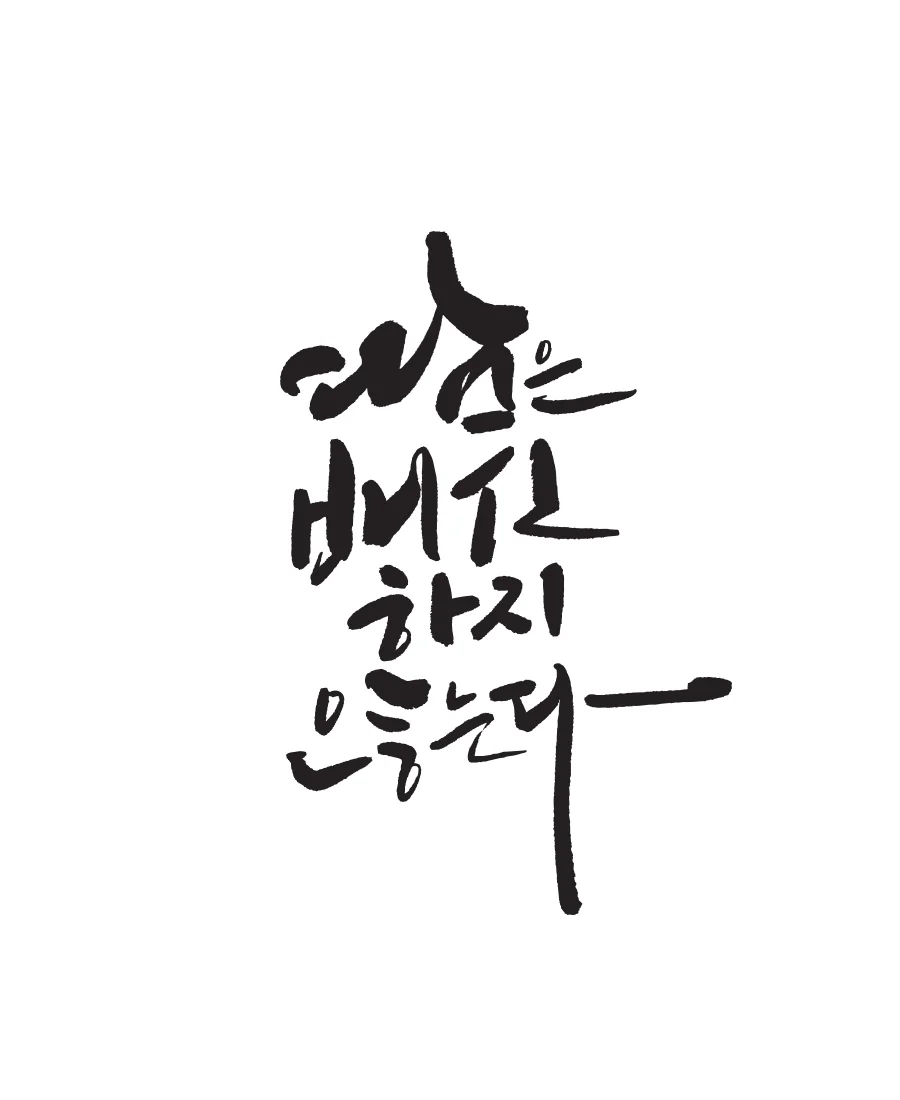 땀은
배신
하지
않는다